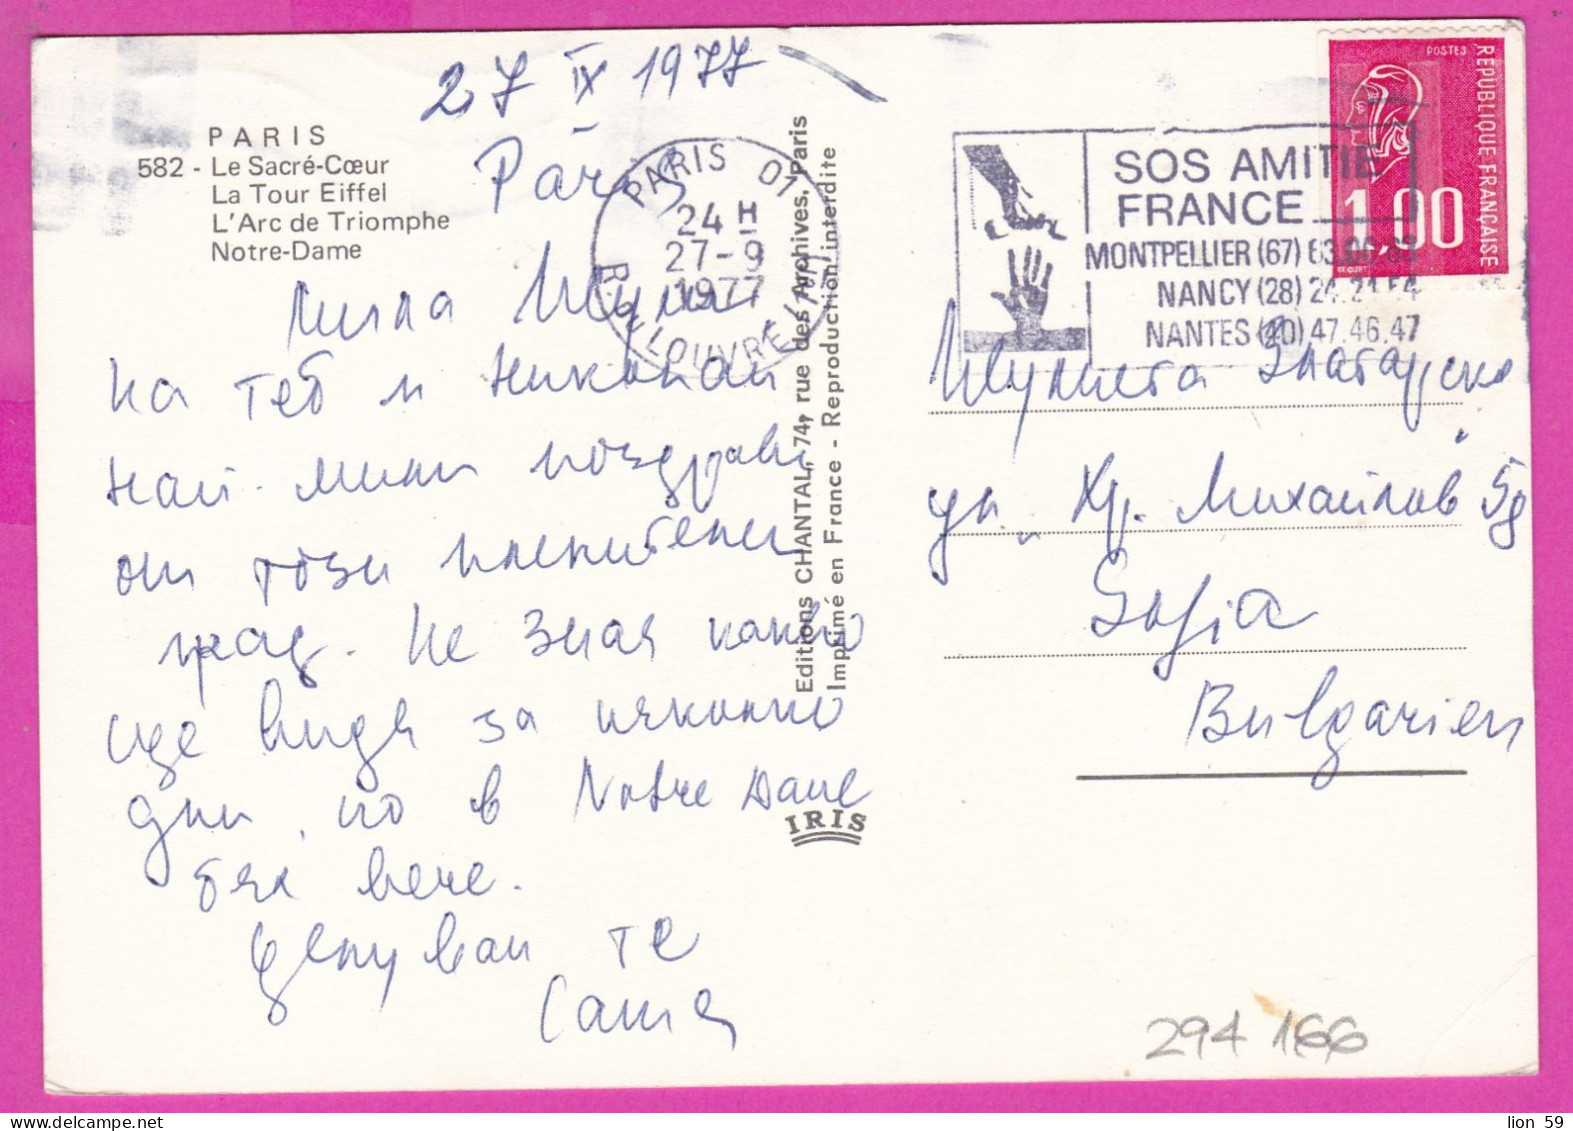 27 IX 1977
Paris
PARIS
582 - Le Sacré-Cœur
La Tour Eiffel
L'Arc de Triomphe
Notre-Dame
Мила
На теб и Николай
най-мили поздрави
от този пленителен
град. Не зная какво
ще видя за няколко
дни, но в Notre Dame
бях вече.
Целувам те
Сашa
PARIS 01
24 H
27-9
1977
R. DU LOUVRE (1er)
Editions CHANTAL, 74, rue des Archives, Paris
Imprimé en France - Reproduction interdite
IRIS
SOS AMITIE
FRANCE
MONTPELLIER (67) 63.00.63
NANCY (28) 24.21.54
NANTES (40) 47.46.47
POSTES
REPUBLIQUE FRANÇAISE
1,00
BEQUET
Златарска
ул. Хр. Михайлов
Sofia
Bulgarien
294 166
lion 59